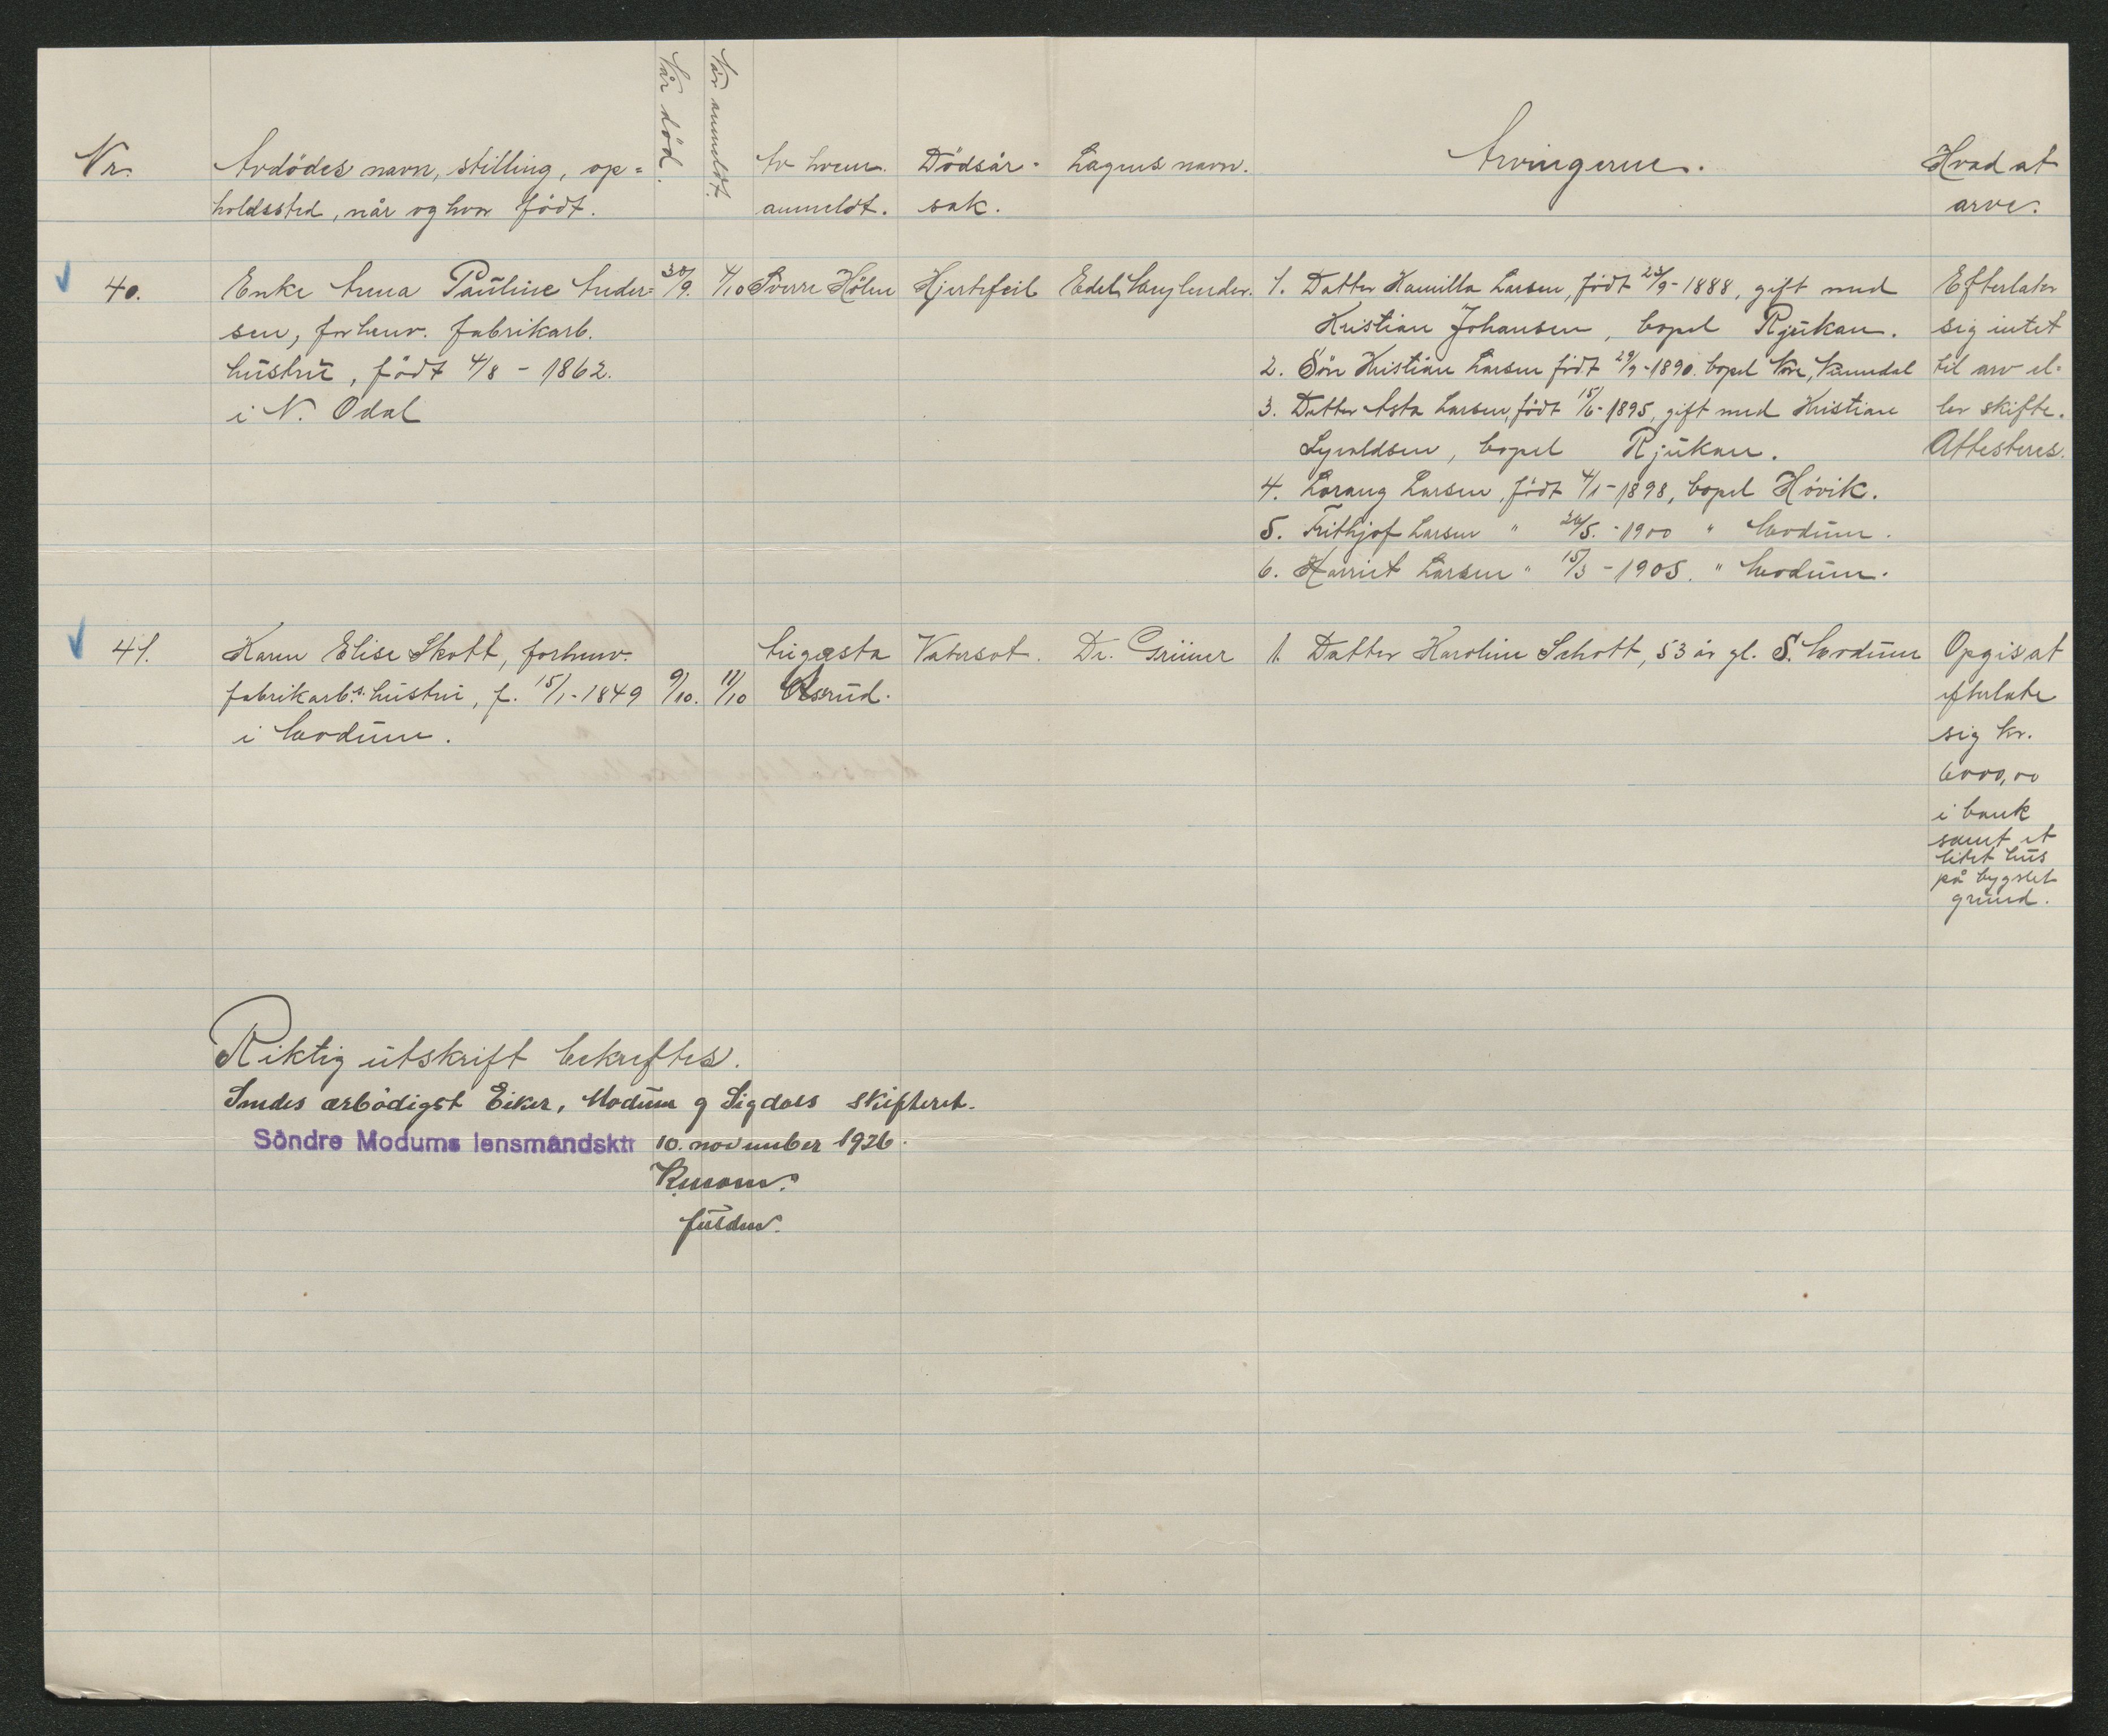 Nr. Avdödes navn, stilling, op= Når död. Når anmeldt. Av hvem Dödsår- Lægens navn. Arvingerne. Hvad at
holdssted, når og hvor födt. anmeldt. sak. arve.
40. Enke Anna Pauline Ander= 30/9. 4/10 Sverre Hölen Hjertefeil Edel 1. Datter Kamilla Larsen, födt 23/9-1888, gift med Efterlater
sen, forhenv. fabrikarb. Kristian Johansen, bopel Rjukan. sig intet
hustru, födt 4/8 - 1862. 2. Sön Kristian Larsen födt 29/9-1890. bopel til arv el-
i N. Odal 3. Datter Asta Larsen, födt 15/6-1895, gift med Kristian ler skifte.
bopel Rjukan. Attesteres.
4. Lorang Larsen, födt 4/1-1898, bopel Hövik.
5. Frithjof Larsen " 26/5.-1900 " Modum.
6. Harriet Larsen " 15/3-1905. " Modum.
41. Karen Elise Skott, forhenv. Augusta Vatersot. Dr. Grüner 1. Datter Karoline Schott, 53 år gl. S. Modum Opgis at
fabrikarb.s hustru, f. 15/1-1849 9/10. 11/10 efterlate
i Modum. sig kr.
6000,00
i bank
samt et
litet hus
på bygslet
grund.
Riktig utskrift bekreftes.
Sendes ærbödigst Eiker, Modum og Sigdals skifteret.
Söndre Modums lensmandsktr 10. november 1926.
fuldm.